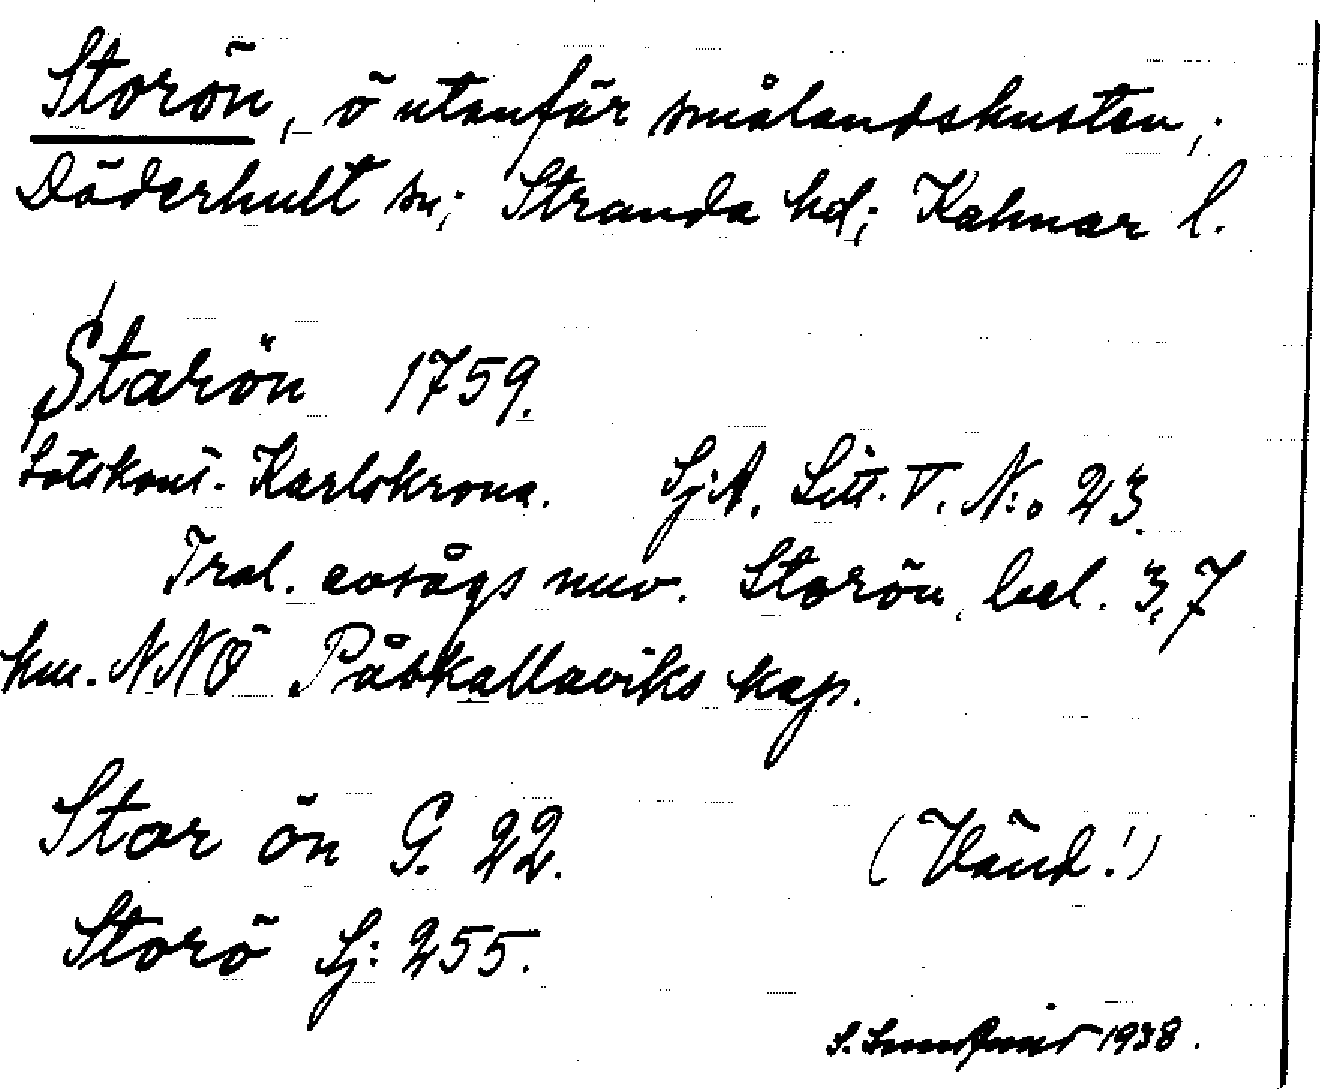 Storön, ö utanför smålandskusten;
Döderhult sn; Stranda hd; Kalmar l.
Starön 1759.
Lotskont. Karlskrona. SjA. Litt. V. N:o 23.
Trol. avsågs nuv. Storön, bel. 3,7
km. NNÖ Påskallaviks kap.
Stor ön G. 22. (Vänd!)
Storö Sj: 255.
S. 1938.